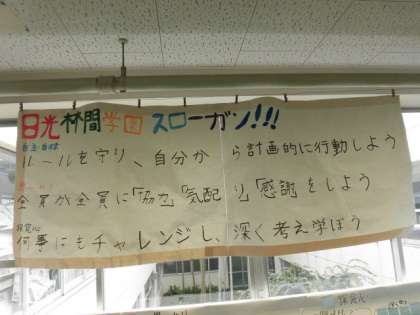 日光林間学園スローガン!!!
自主・自律
ルールを守り、自分から計画的に行動しよう
全員が全員に「協力」「気配り」「感謝」をしよう
探究心
何事にもチャレンジし、深く考え学ぼう